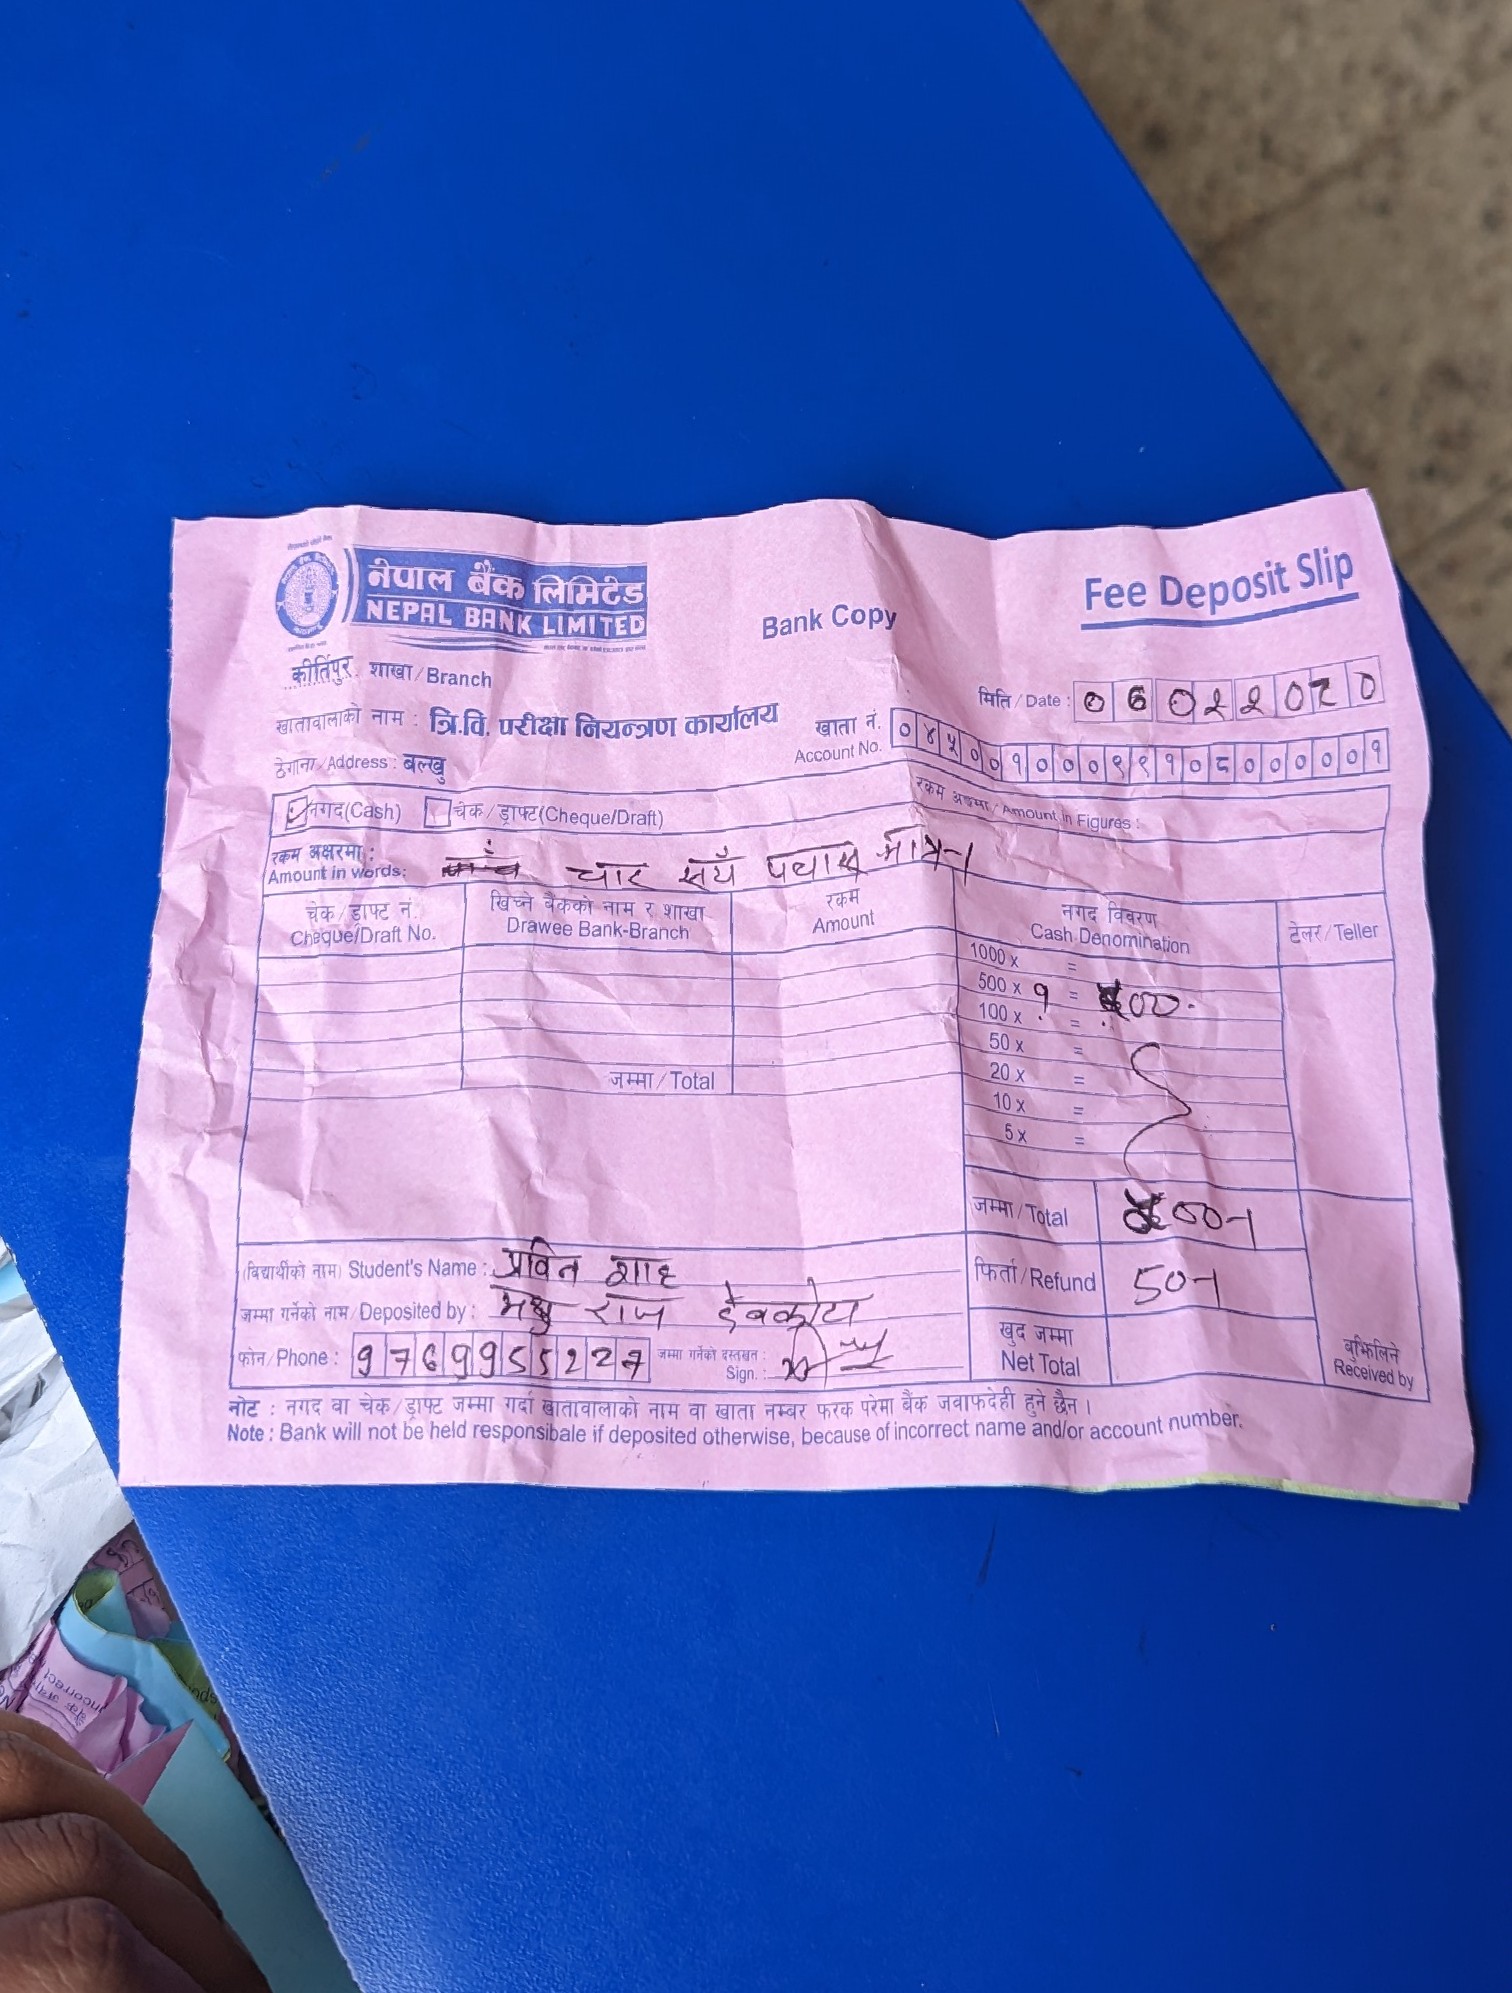 नेपाल बैंक लिमिटेड
NEPAL BANK LIMITED
Bank Copy
Fee Deposit Slip
कीर्तिपुर शाखा/Branch
मिति/Date :
खातावालाको नाम : त्रि.वि. परीक्षा नियन्त्रण कार्यालय
खाता नं. ०४५००१०००९९१०८०००००१
Account No.
ठेगाना/Address : बल्खु
नगद(Cash) चेक/ड्राफ्ट(Cheque/Draft)
रकम अङ्कमा/Amount in Figures :
रकम अक्षरमा :
Amount in words: चार सयँ पचास मात्र।
चेक/ड्राफ्ट नं.
Cheque/Draft No.
खिच्ने बैंकको नाम र शाखा
Drawee Bank-Branch
रकम
Amount
नगद विवरण
Cash Denomination
टेलर/Teller
1000 x =
500 x १ = ५00
100 x =
50 x =
20 x =
10 x =
5 x =
जम्मा/Total
जम्मा/Total ५00-।
(विद्यार्थीको नाम) Student's Name : प्रविन शाह
फिर्ता/Refund 50-।
जम्मा गर्नेको नाम/Deposited by : राज देवकोटा
फोन/Phone : 9769955227
जम्मा गर्नेको दस्तखत :
Sign. :
खुद जम्मा
Net Total
बुझिलिने
Received by
नोट : नगद वा चेक/ड्राफ्ट जम्मा गर्दा खातावालाको नाम वा खाता नम्बर फरक परेमा बैंक जवाफदेही हुने छैन ।
Note : Bank will not be held responsibale if deposited otherwise, because of incorrect name and/or account number.